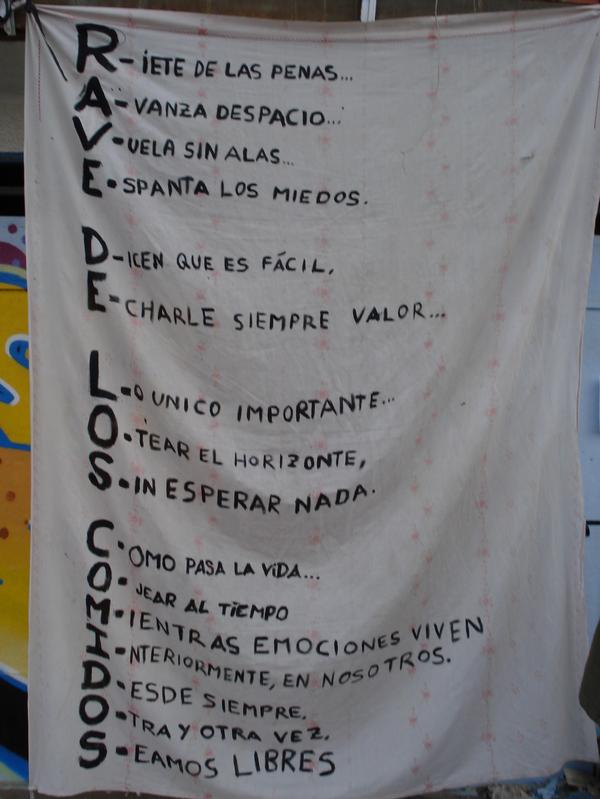 R-ÍETE DE LAS PENAS...
A-VANZA DESPACIO...
V-UELA SIN ALAS...
E-SPANTA LOS MIEDOS.
D-ICEN QUE ES FÁCIL,
E-CHARLE SIEMPRE VALOR...
L-O UNICO IMPORTANTE...
O-TEAR EL HORIZONTE,
S-IN ESPERAR NADA.
C-OMO PASA LA VIDA...
O-JEAR AL TIEMPO
M-IENTRAS EMOCIONES VIVEN
I-NTERIORMENTE, EN NOSOTROS.
D-ESDE SIEMPRE,
O-TRA Y OTRA VEZ,
S-EAMOS LIBRES